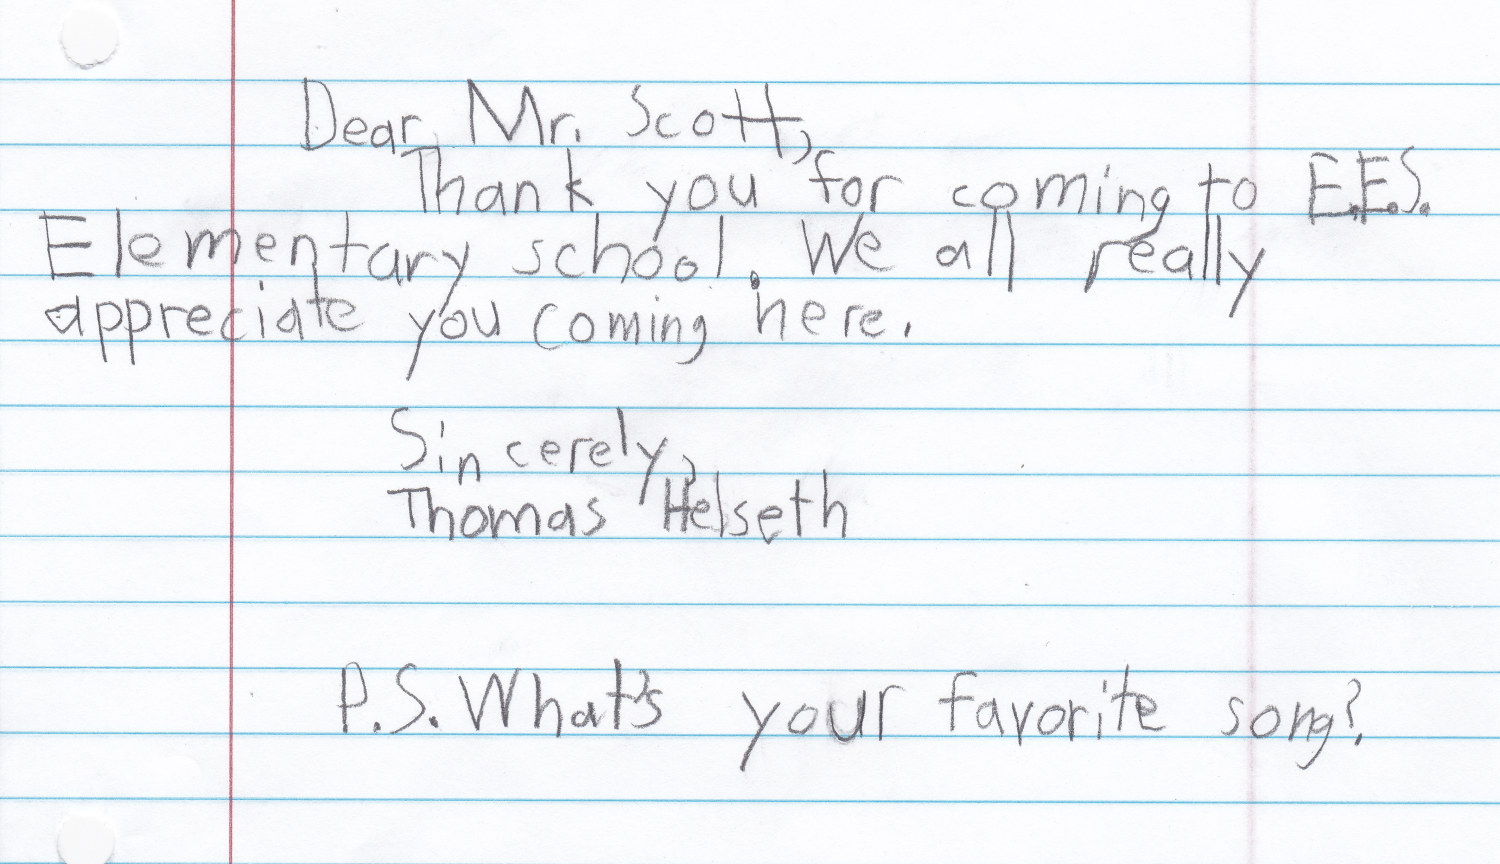 Dear Mr. Scott,
Thank you for coming to E.E.S.
Elementary school. We all really
appreciate you coming here.
Sincerely,
Thomas Helseth
P.S. What's your favorite song?